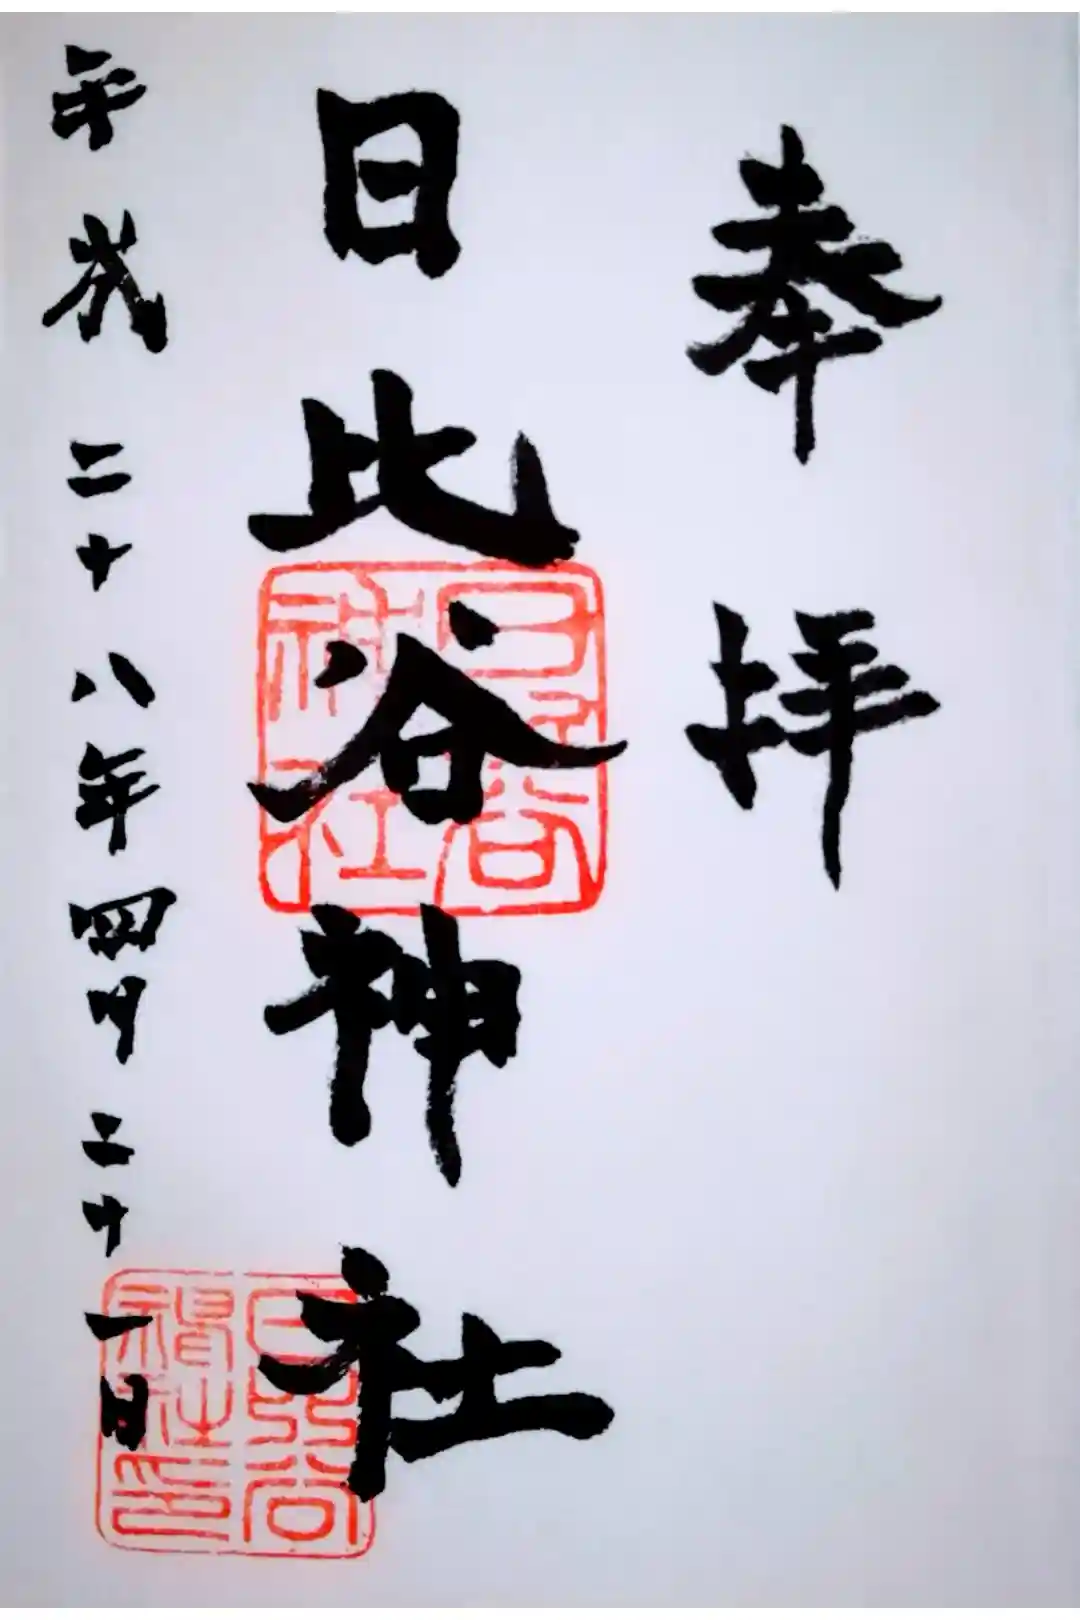 奉拝
日比谷神社
平成二十八年四月二十一日
日比谷神社
日比谷神社印